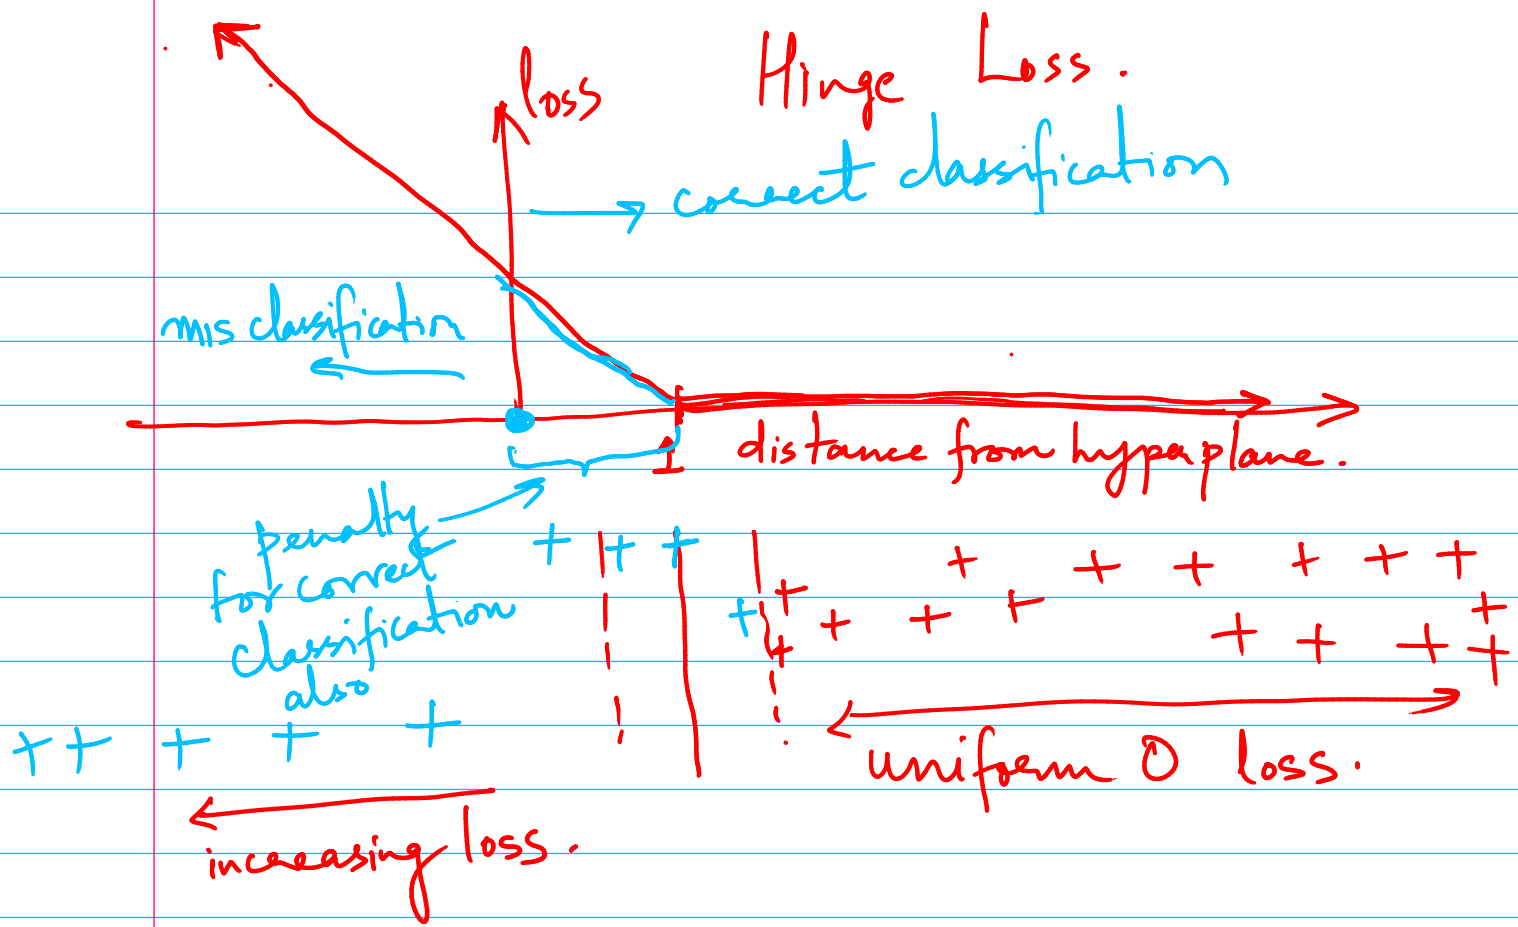 Hinge Loss.
loss
correct classification
mis classification
1
distance from hyperplane.
penalty
for correct
classification
also
uniform 0 loss.
increasing loss.